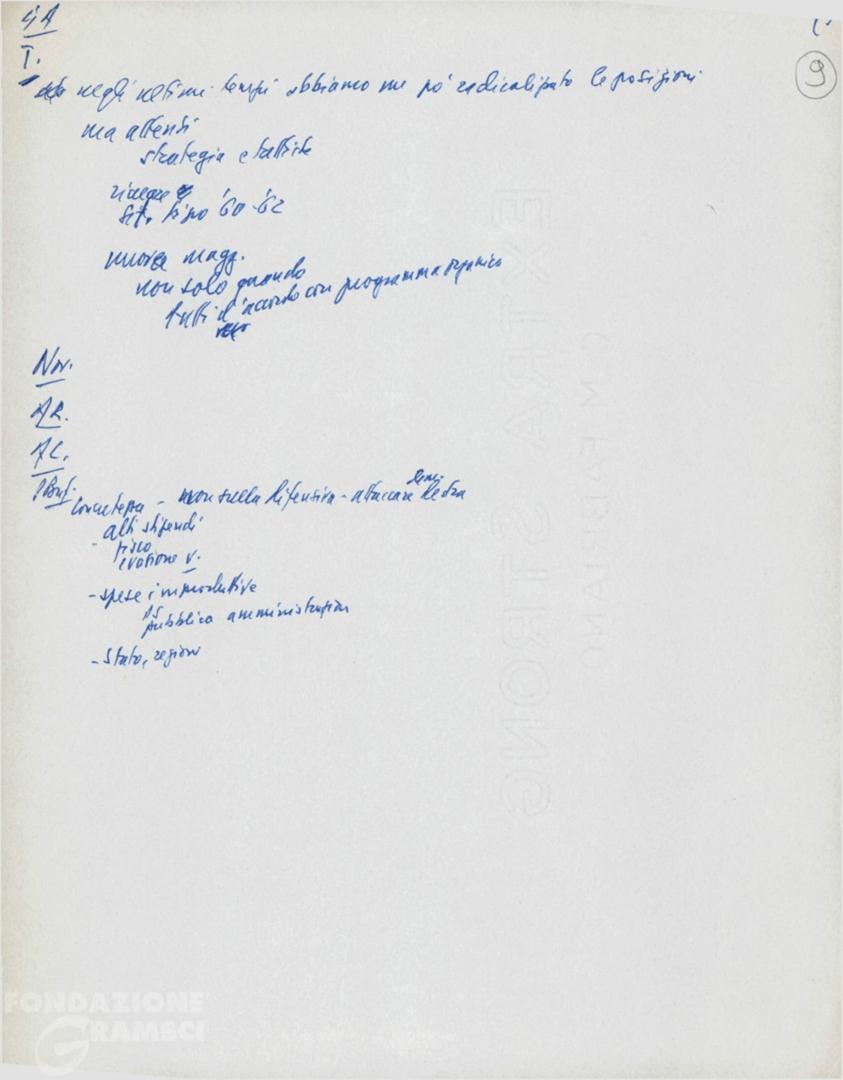 I.
9
negli ultimi tempi abbiamo un po' radicalizzato le posizioni
ma attenti
strategia e tattiche
sit. tipo '60-'62
nuova magg.
non solo quando
tutti d'accordo con programma organico
Nov.
AR.
AC.
concretezza - non sulla difensiva - attaccare destra
alti stipendi
- fisco
evasione V.
- spese improduttive
pubblica amministrazione
- Stato, regioni
EXTRA STRONG
C.M. FABRIANO
FONDAZIONE
GRAMSCI